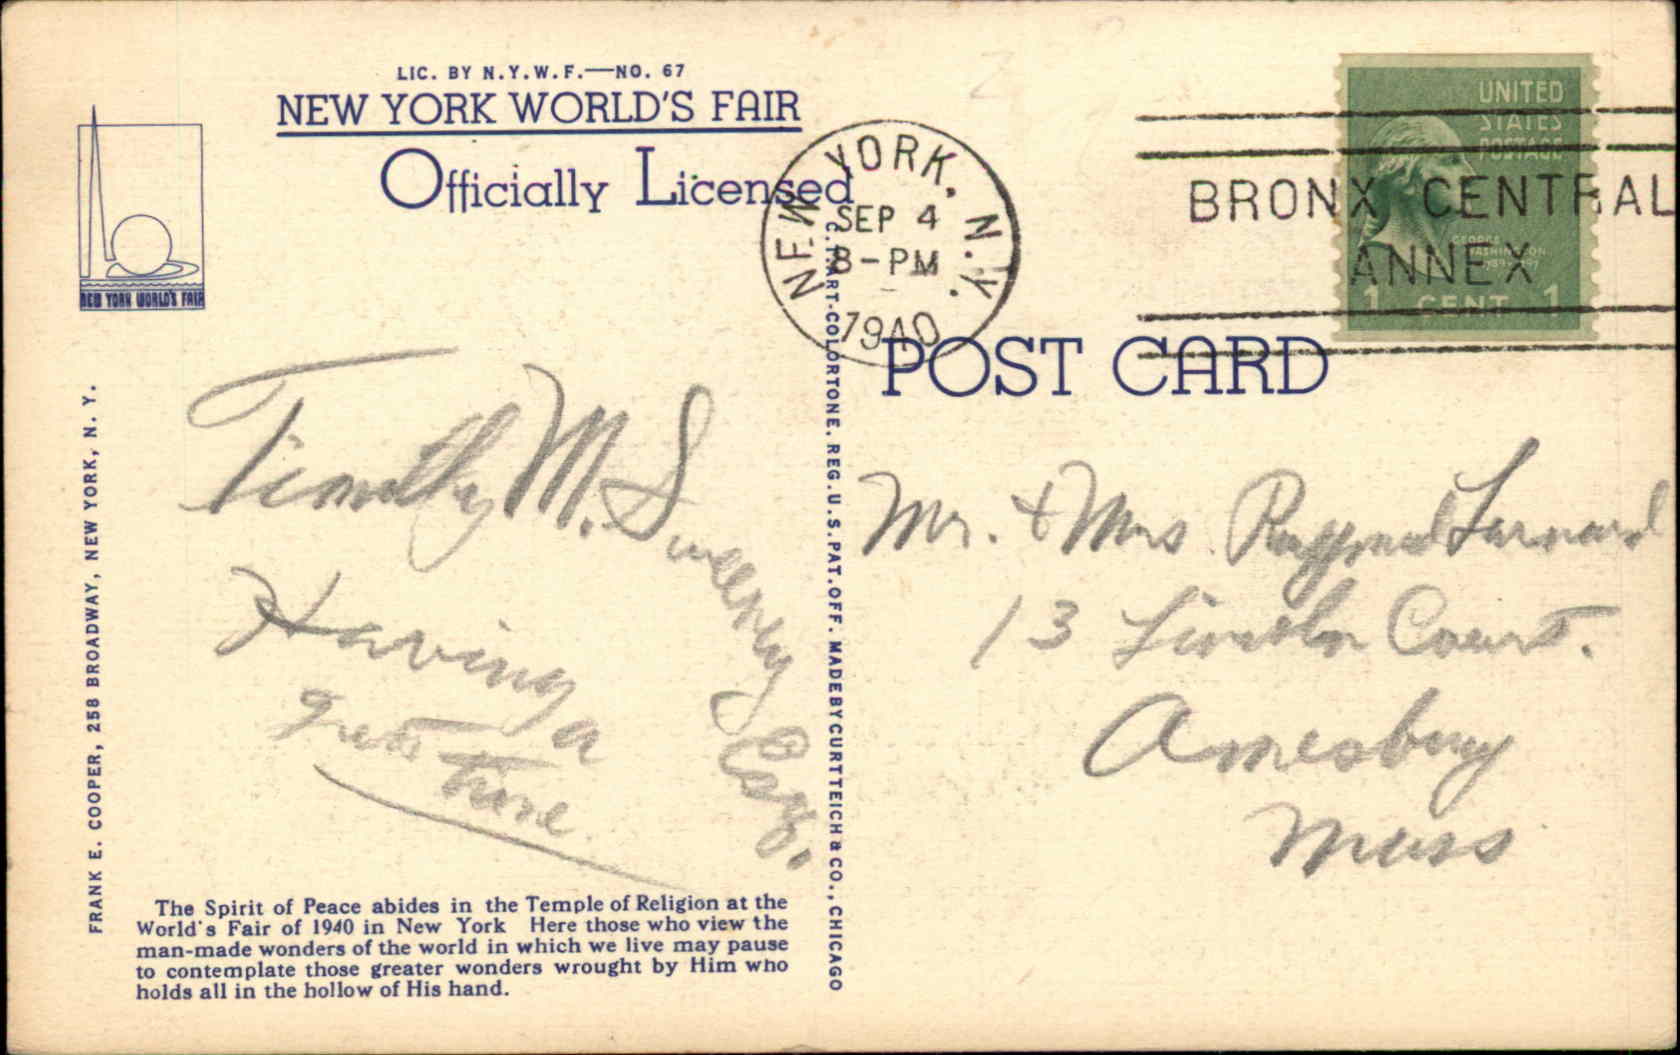 LIC. BY N.Y.W.F.—NO. 67
NEW YORK WORLD'S FAIR
Officially Licensed
NEW YORK WORLD'S FAIR
NEW YORK, N.Y.
SEP 4
8-PM
1940
BRONX CENTRAL
ANNEX
UNITED
STATES
POSTAGE
GEORGE
WASHINGTON
1789-1797
1 CENT 1
POST CARD
FRANK E. COOPER, 258 BROADWAY, NEW YORK, N. Y.
C.T.ART-COLORTONE. REG.U.S.PAT.OFF. MADE BY CURT TEICH & CO., CHICAGO
Timothy M. Sweeney
Esq.
Having a
great time
Mr. & Mrs Raymond
13 Lincoln Court.
Amesbury
Mass
The Spirit of Peace abides in the Temple of Religion at the
World's Fair of 1940 in New York Here those who view the
man-made wonders of the world in which we live may pause
to contemplate those greater wonders wrought by Him who
holds all in the hollow of His hand.